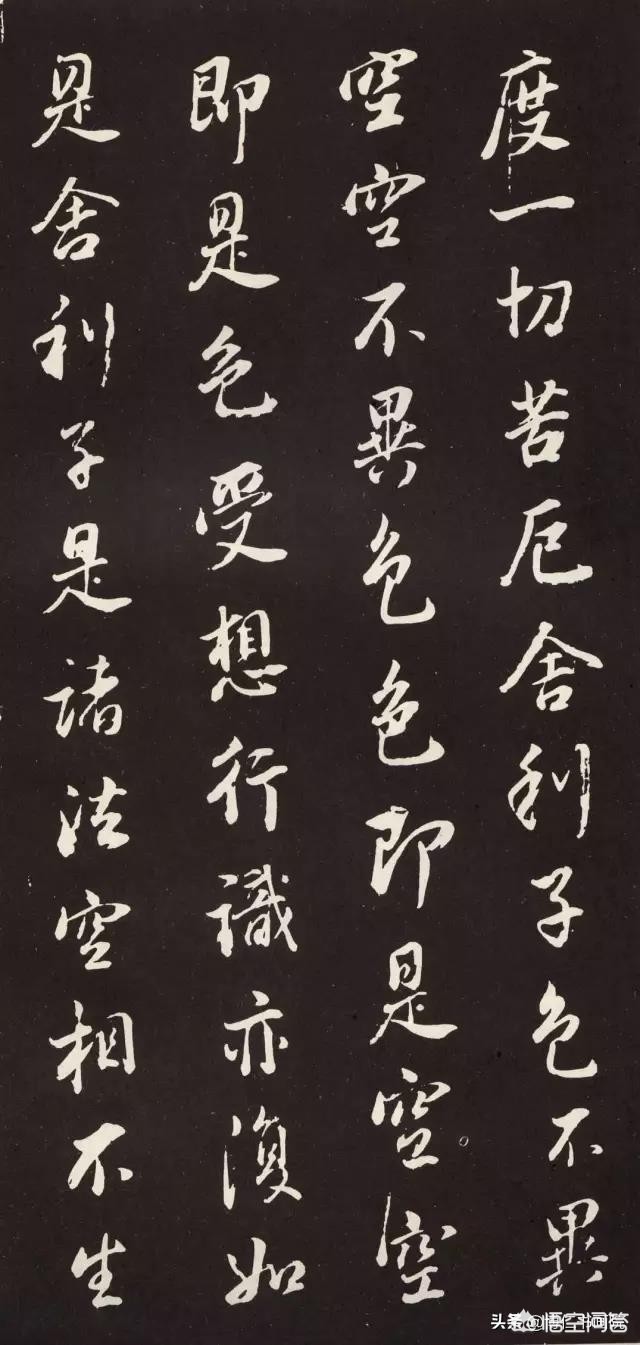 度一切苦厄舍利子色不異
空空不異色色即是空空
即是色受想行識亦復如
是舍利子是諸法空相不生
头条@悟